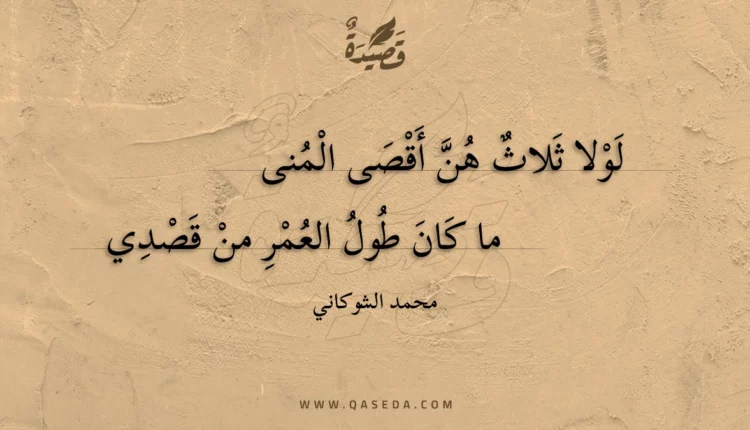 قَصِيْدَةٌ
لَوْلا ثَلاثٌ هُنَّ أَقْصَى الْمُنى
ما كَانَ طُولُ العُمْرِ منْ قَصْدِي
محمد الشوكاني
WWW.QASEDA.COM